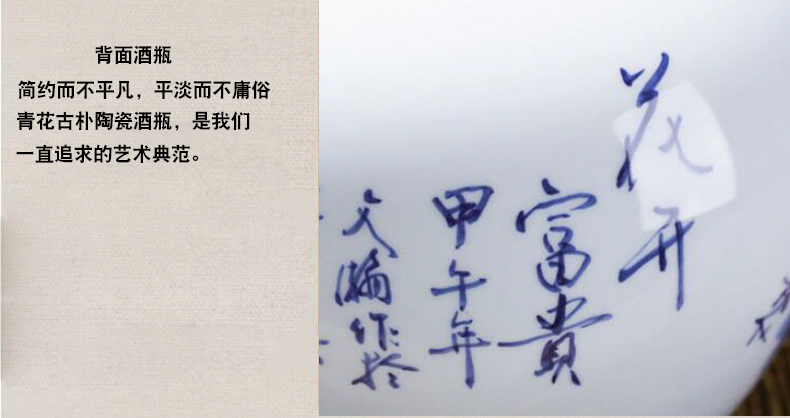 背面酒瓶
简约而不平凡，平淡而不庸俗
青花古朴陶瓷酒瓶，是我们
一直追求的艺术典范。
花开
富貴
甲午年
文瀚作於